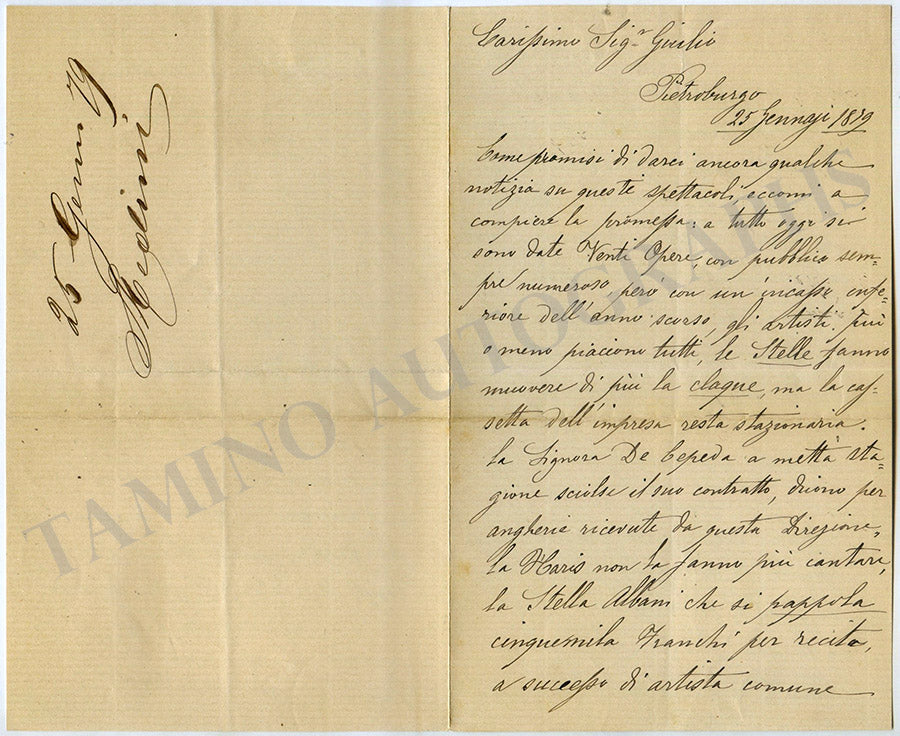 25 Genn 79
Medini
Carissimo Sigr Giulio
Pietroburgo
25 Gennajo 1879
Come promisi di darci ancora qualche
notizia su questi spettacoli, eccomi a
compiere la promessa: a tutto oggi si
sono date Venti Opere, con pubblico sem=
pre numeroso, però con un'incasso infe=
riore dell'anno scorso, gli artisti più
o meno piacciono tutti, le Stelle fanno
muovere di più la claque, ma la cas=
setta dell'impresa resta stazionaria.
la Signora De Cepeda a mettà sta=
gione sciolse il suo contratto, dicono per
angherie ricevute da questa Direzione,
la non la fanno più cantare,
la Stella Albani che si pappola
cinquemila Franchi per recita,
a successo di artista comune
TAMINO AUTOGRAPHS